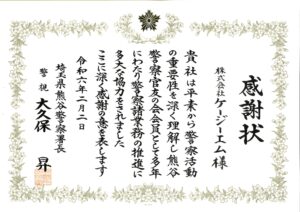 感謝状
株式会社
ケージーエム様
貴社は平素から警察活動
の重要性を深く理解し熊谷
警察官友の会会員として多年
にわたり警察諸業務の推進に
多大な協力をされました
ここに深く感謝の意を表します
令和六年二月二日
埼玉県熊谷警察署長
警視 大久保 昇